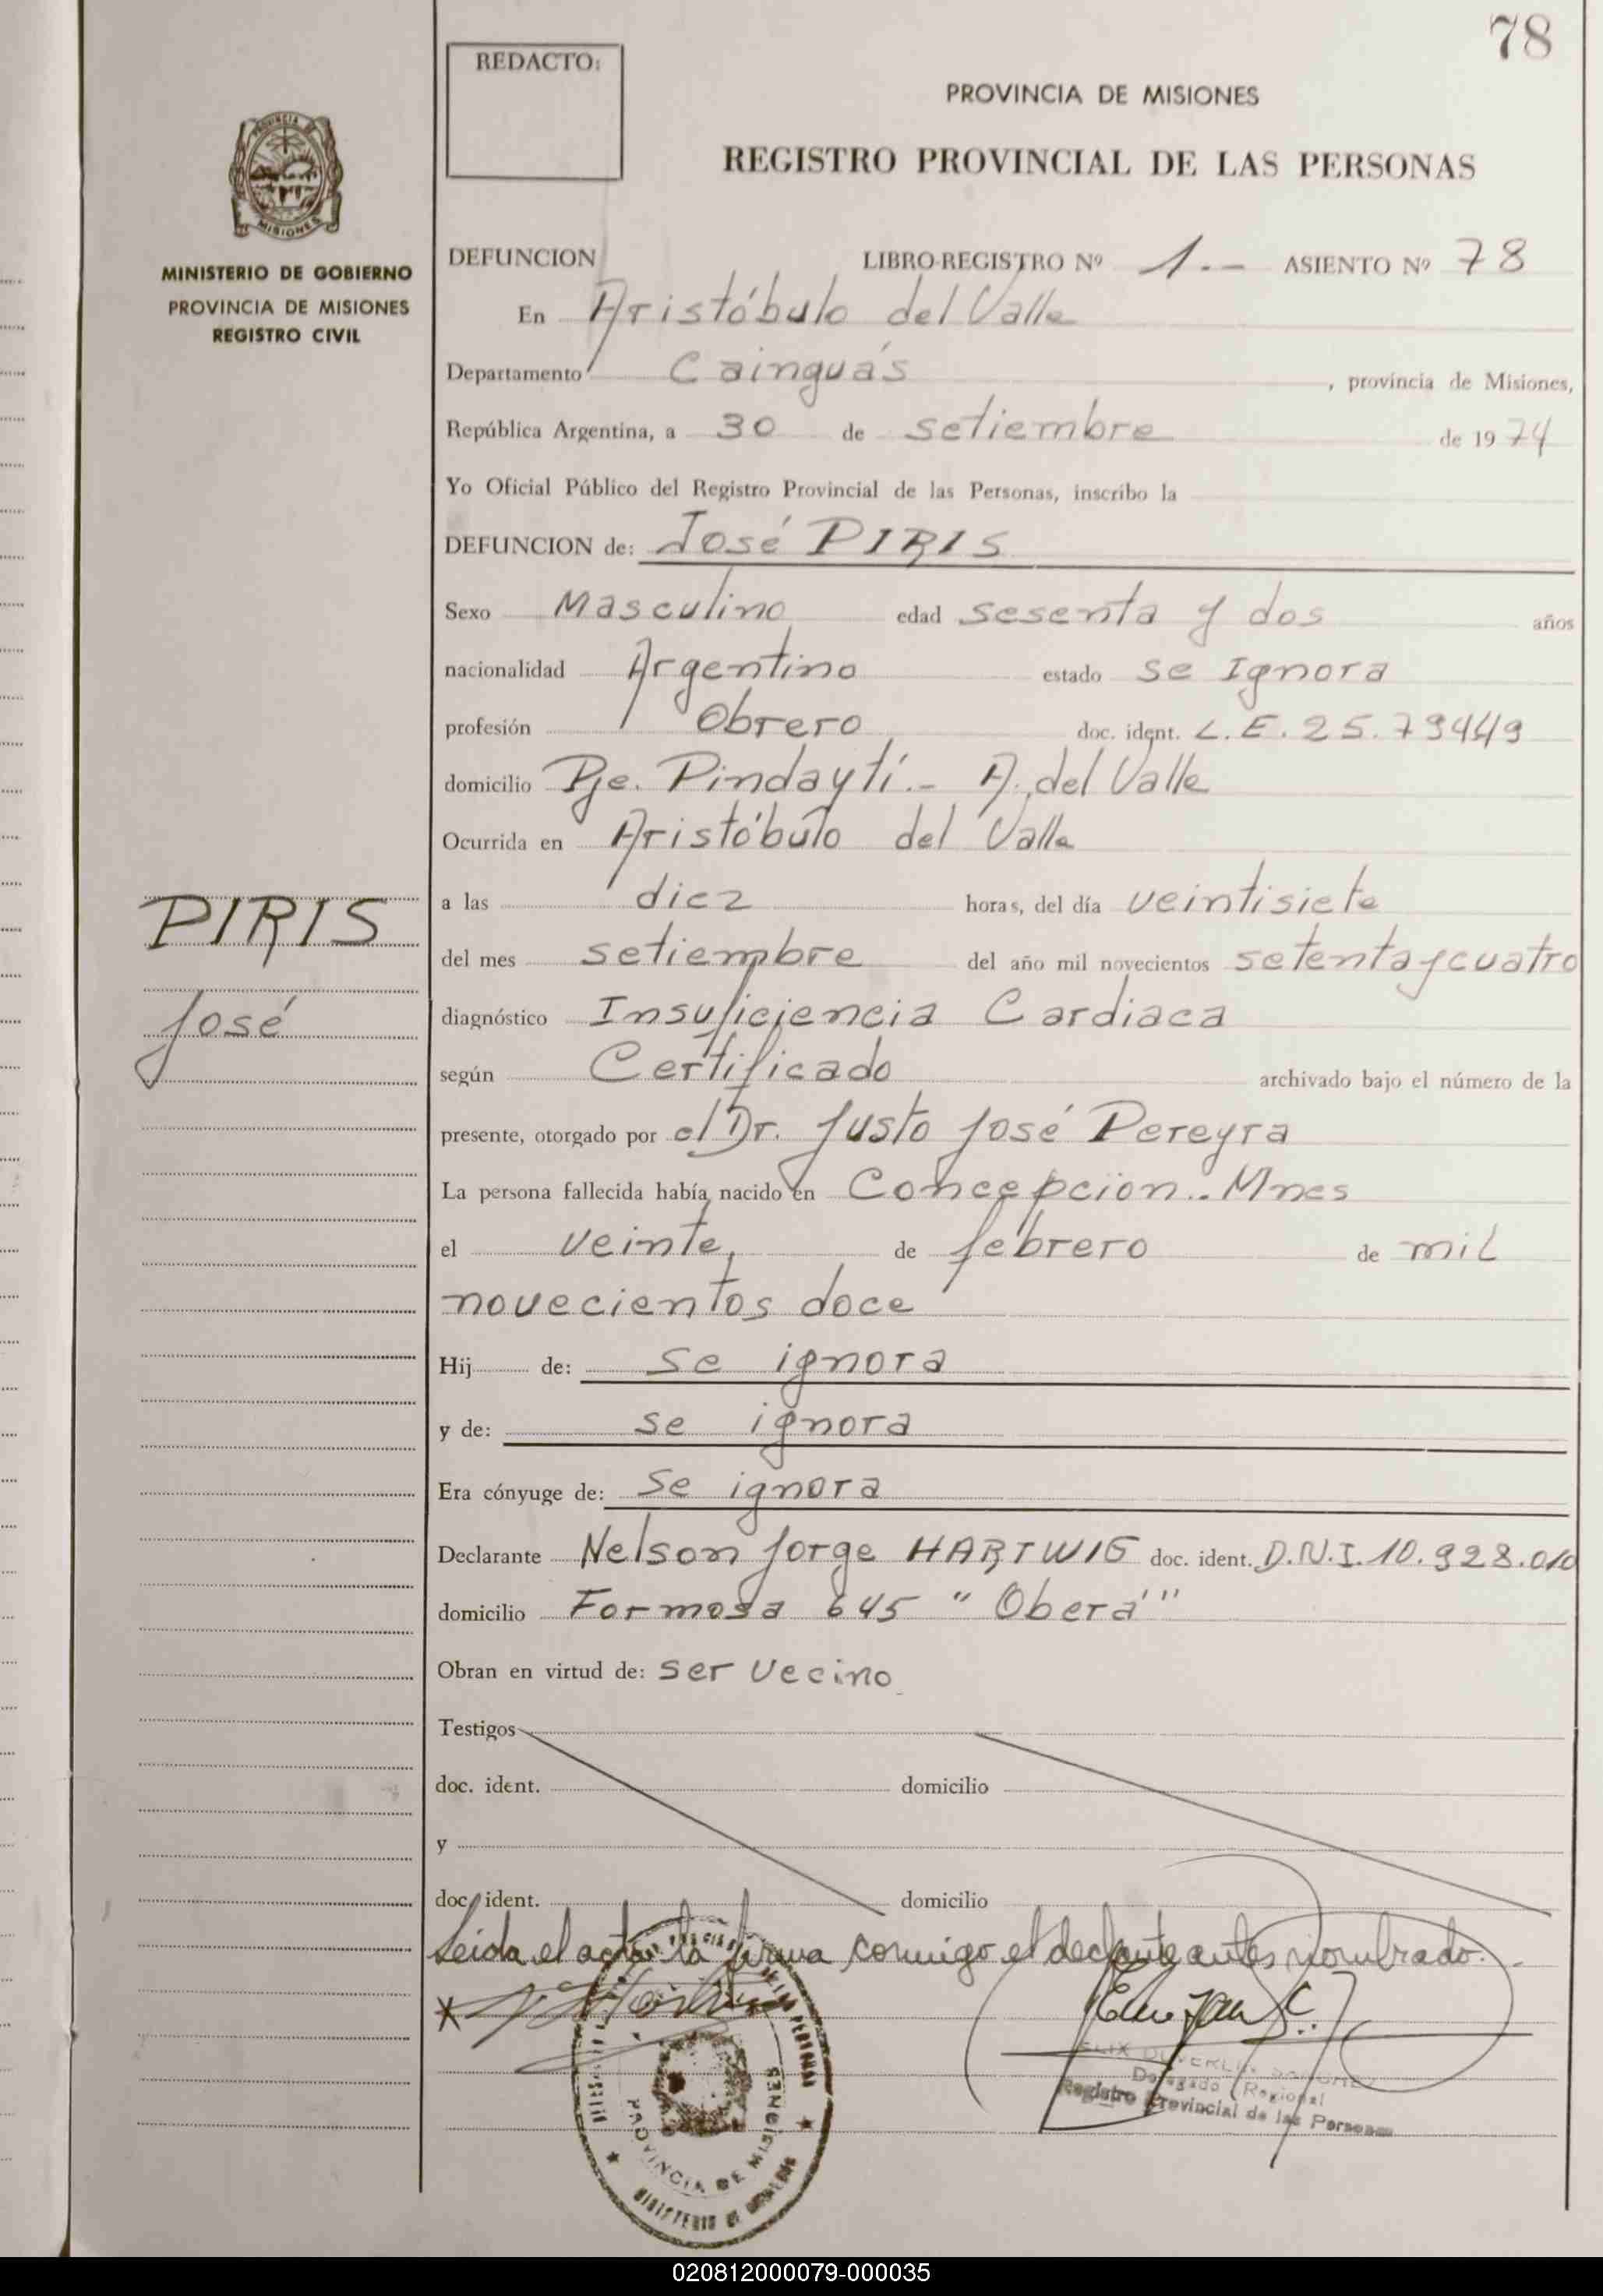 78
REDACTO:
PROVINCIA DE MISIONES
REGISTRO PROVINCIAL DE LAS PERSONAS
PROVINCIA DE
MISIONES
MINISTERIO DE GOBIERNO
PROVINCIA DE MISIONES
REGISTRO CIVIL
DEFUNCION LIBRO-REGISTRO Nº 1.- ASIENTO Nº 78
En Aristóbulo del Valle
Departamento Cainguás, provincia de Misiones,
República Argentina, a 30 de setiembre de 1974
Yo Oficial Público del Registro Provincial de las Personas, inscribo la
DEFUNCION de: José PIRIS
Sexo Masculino edad sesenta y dos años
nacionalidad Argentino estado se Ignora
profesión Obrero doc. ident. L.E. 25.79449
domicilio Pje. Pindaytí.- A. del Valle
Ocurrida en Aristóbulo del Valle
a las diez horas, del día veintisiete
del mes setiembre del año mil novecientos setenta y cuatro
diagnóstico Insuficiencia Cardiaca
según Certificado archivado bajo el número de la
presente, otorgado por el Dr. Justo José Pereyra
La persona fallecida había nacido en Concepcion.. Mnes
el veinte, de febrero de mil
novecientos doce
Hij de: se ignora
y de: se ignora
Era cónyuge de: se ignora
Declarante Nelson Jorge HARTWIG doc. ident. D.N.I. 10.928.010
domicilio Formosa 645 "Oberá"
Obran en virtud de: ser vecino
Testigos
doc. ident. domicilio
y
doc. ident. domicilio
Leida el acta la firma conmigo el declante antes nombrado.
PIRIS
José
Delegado Regional
Registro Provincial de las Personas
PROVINCIA DE MISIONES
MINISTERIO DE GOBIERNO
020812000079-000035